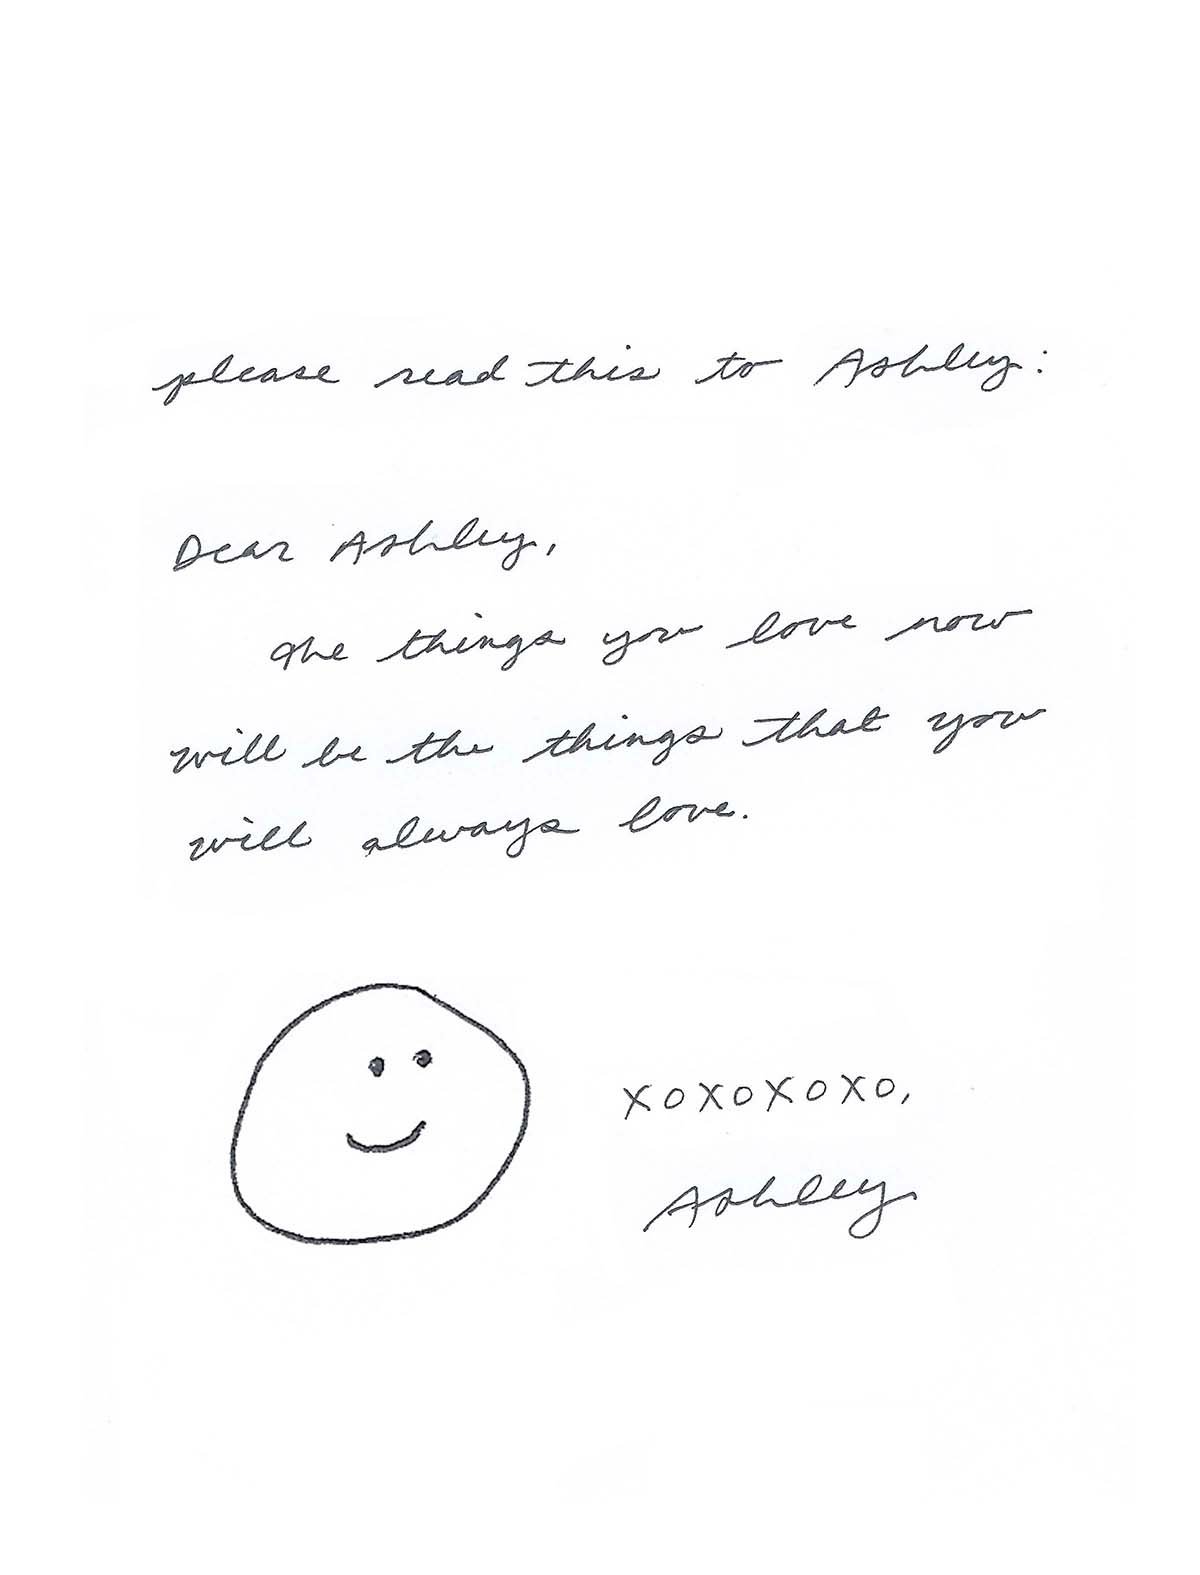 please read this to Ashley:
Dear Ashley,
The things you love now
will be the things that you
will always love.
xoxoxoxo,
Ashley